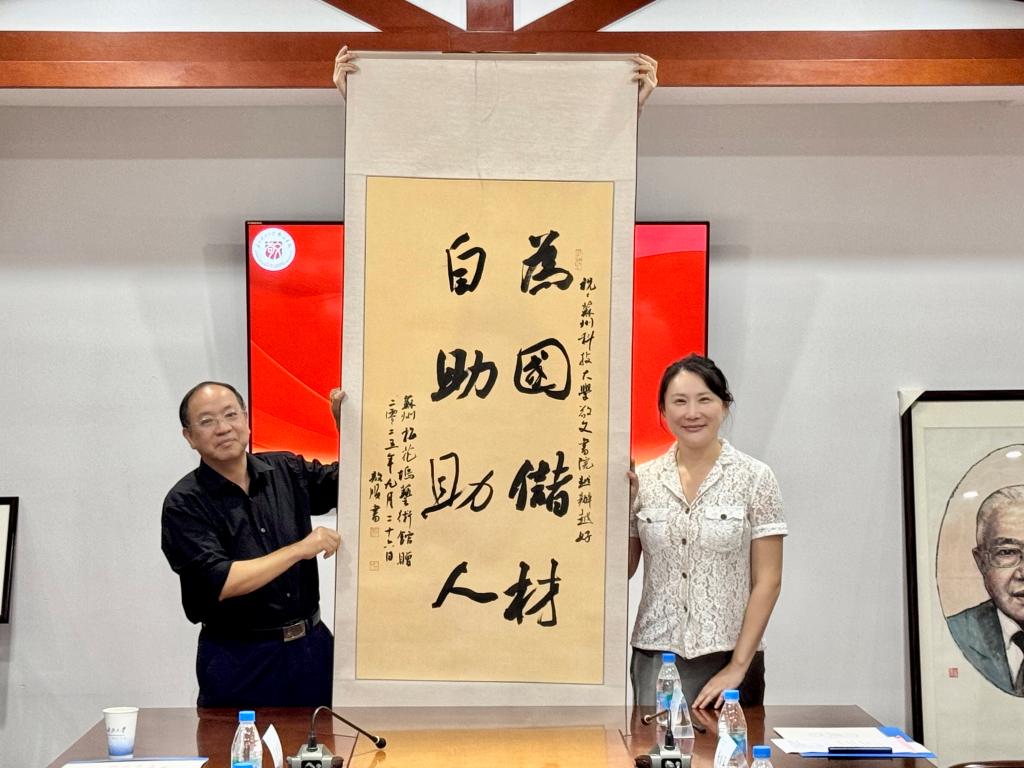 祝:蘇州科技大學敬文書院越辦越好
為國儲材
自助助人
蘇州桃花塢藝術館贈
二零二五年九月二十六日
書